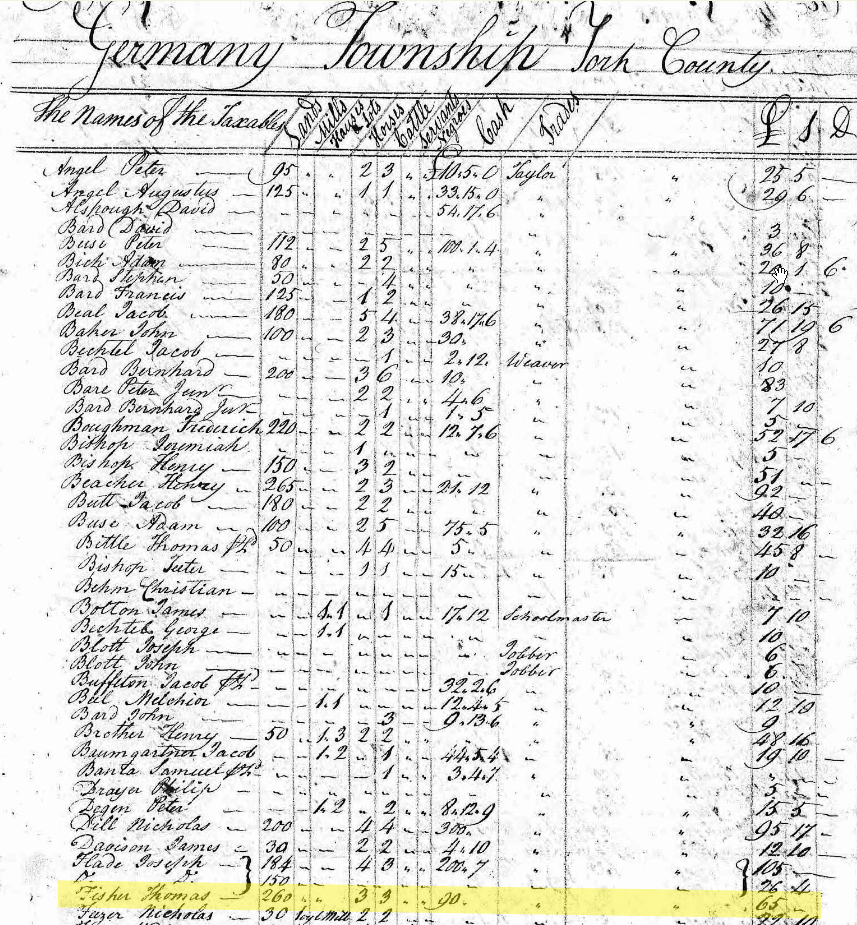 Germany Township York County
The Names of the Taxables Lands Mills Houses & Lots Horses Cattle Servants Negroes Cash Trades £ S D
Angel Peter 95 " " 2 3 " £10.5.0 Taylor " 25 5 —
Angel Augustus 125 " " 1 1 " 33.15.0 " " 29 6 —
Alspough David 54.17.6 " "
Bard David 3
Buse Peter 112 2 5 100.1.4 36 8
Bich Adam 80 2 2 1 6
Bard Stephen 50 4 10
Bard Francis 125 1 2 26 15
Beal Jacob 180 5 4 38.17.6 71 19 6
Baker John 100 2 3 30 27 8
Bechtel Jacob 1 2.12 Weaver 10
Bard Bernhard 200 3 6 10 83
Bare Peter Junr 2 2 4.6 7 10
Bard Bernhard Junr 1 1.5 5
Boughman Frederick 220 2 2 12.7.6 52 17 6
Bishop Jeremiah 1 5
Bishop Henry 150 3 2 51
Beacher Henry 265 2 3 21.12 92
Butt Jacob 180 2 2 40
Buse Adam 100 2 5 75.5 32 16
Bittle Thomas 50 4 4 5 45 8
Bishop Peter 1 1 15 10
Behm Christian
Bolton James 1.1 1 17.12 Schoolmaster 7 10
Bechtel George 1.1 10
Blott Joseph Jobber 6
Blott John Jobber 6
Buffelton Jacob 32.2.6 10
Bal Melchior 1.1 12.4.5 12 10
Bard John 3 9.13.6 9
Brother Henry 50 1.3 2 2 48 16
Baumgartner Jacob 1.2 1 44.5.4 19 10
Banta Samuel 1 3.4.7
Drayer Philip 5
Degen Peter 1.2 2 8.12.9 15 5
Dill Nicholas 200 4 4 300 95 17
Davison James 30 2 2 4.10 12 10
Flade Joseph 184 4 3 200.7 105
Do Do 150 26 4
Fisher Thomas 260 3 3 90 65
Fuzer Nicholas 30 Mill 2 2 10